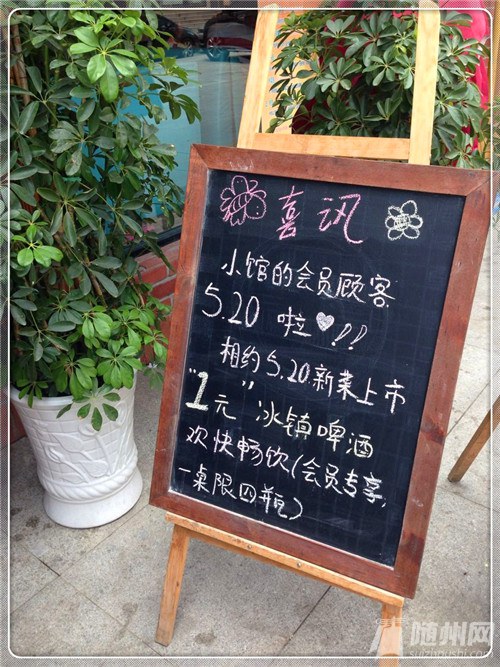 喜讯
小馆的会员顾客
5.20 啦♡!!
相约5.20.新菜上市
"1元"冰镇啤酒
欢快畅饮(会员专享,
一桌限四瓶)
随州网